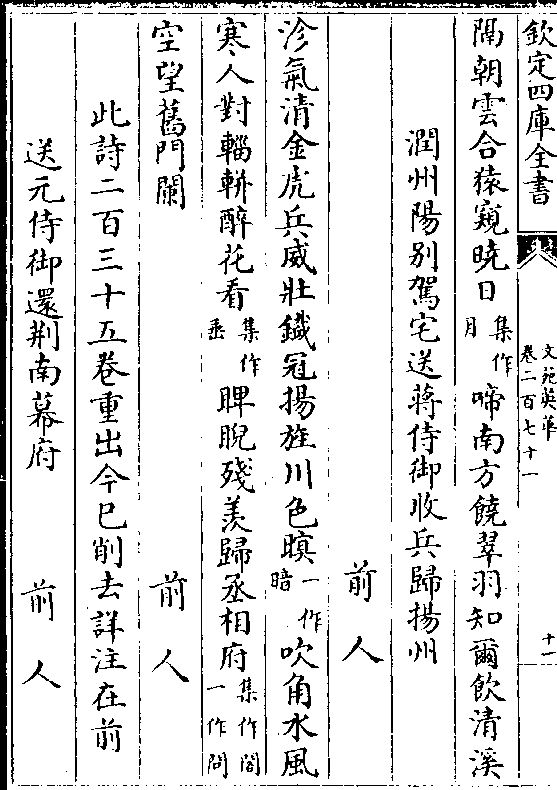 欽定四庫全書
文苑英華
卷二百七十一
十一
隔朝雲合猿窺曉日集作月啼南方饒翠羽知爾飲清溪
潤州陽別駕宅送蔣侍御收兵歸揚州
前人
沴氣清金虎兵威壯鐵冠揚旌川色暝一作暗吹角水風
寒人對輜軿醉花看集作垂睥睨殘羨歸丞相府集作閤一作問
空望舊門闌
前人
此詩二百三十五卷重出今已削去詳注在前
送元侍御還荆南幕府
前人